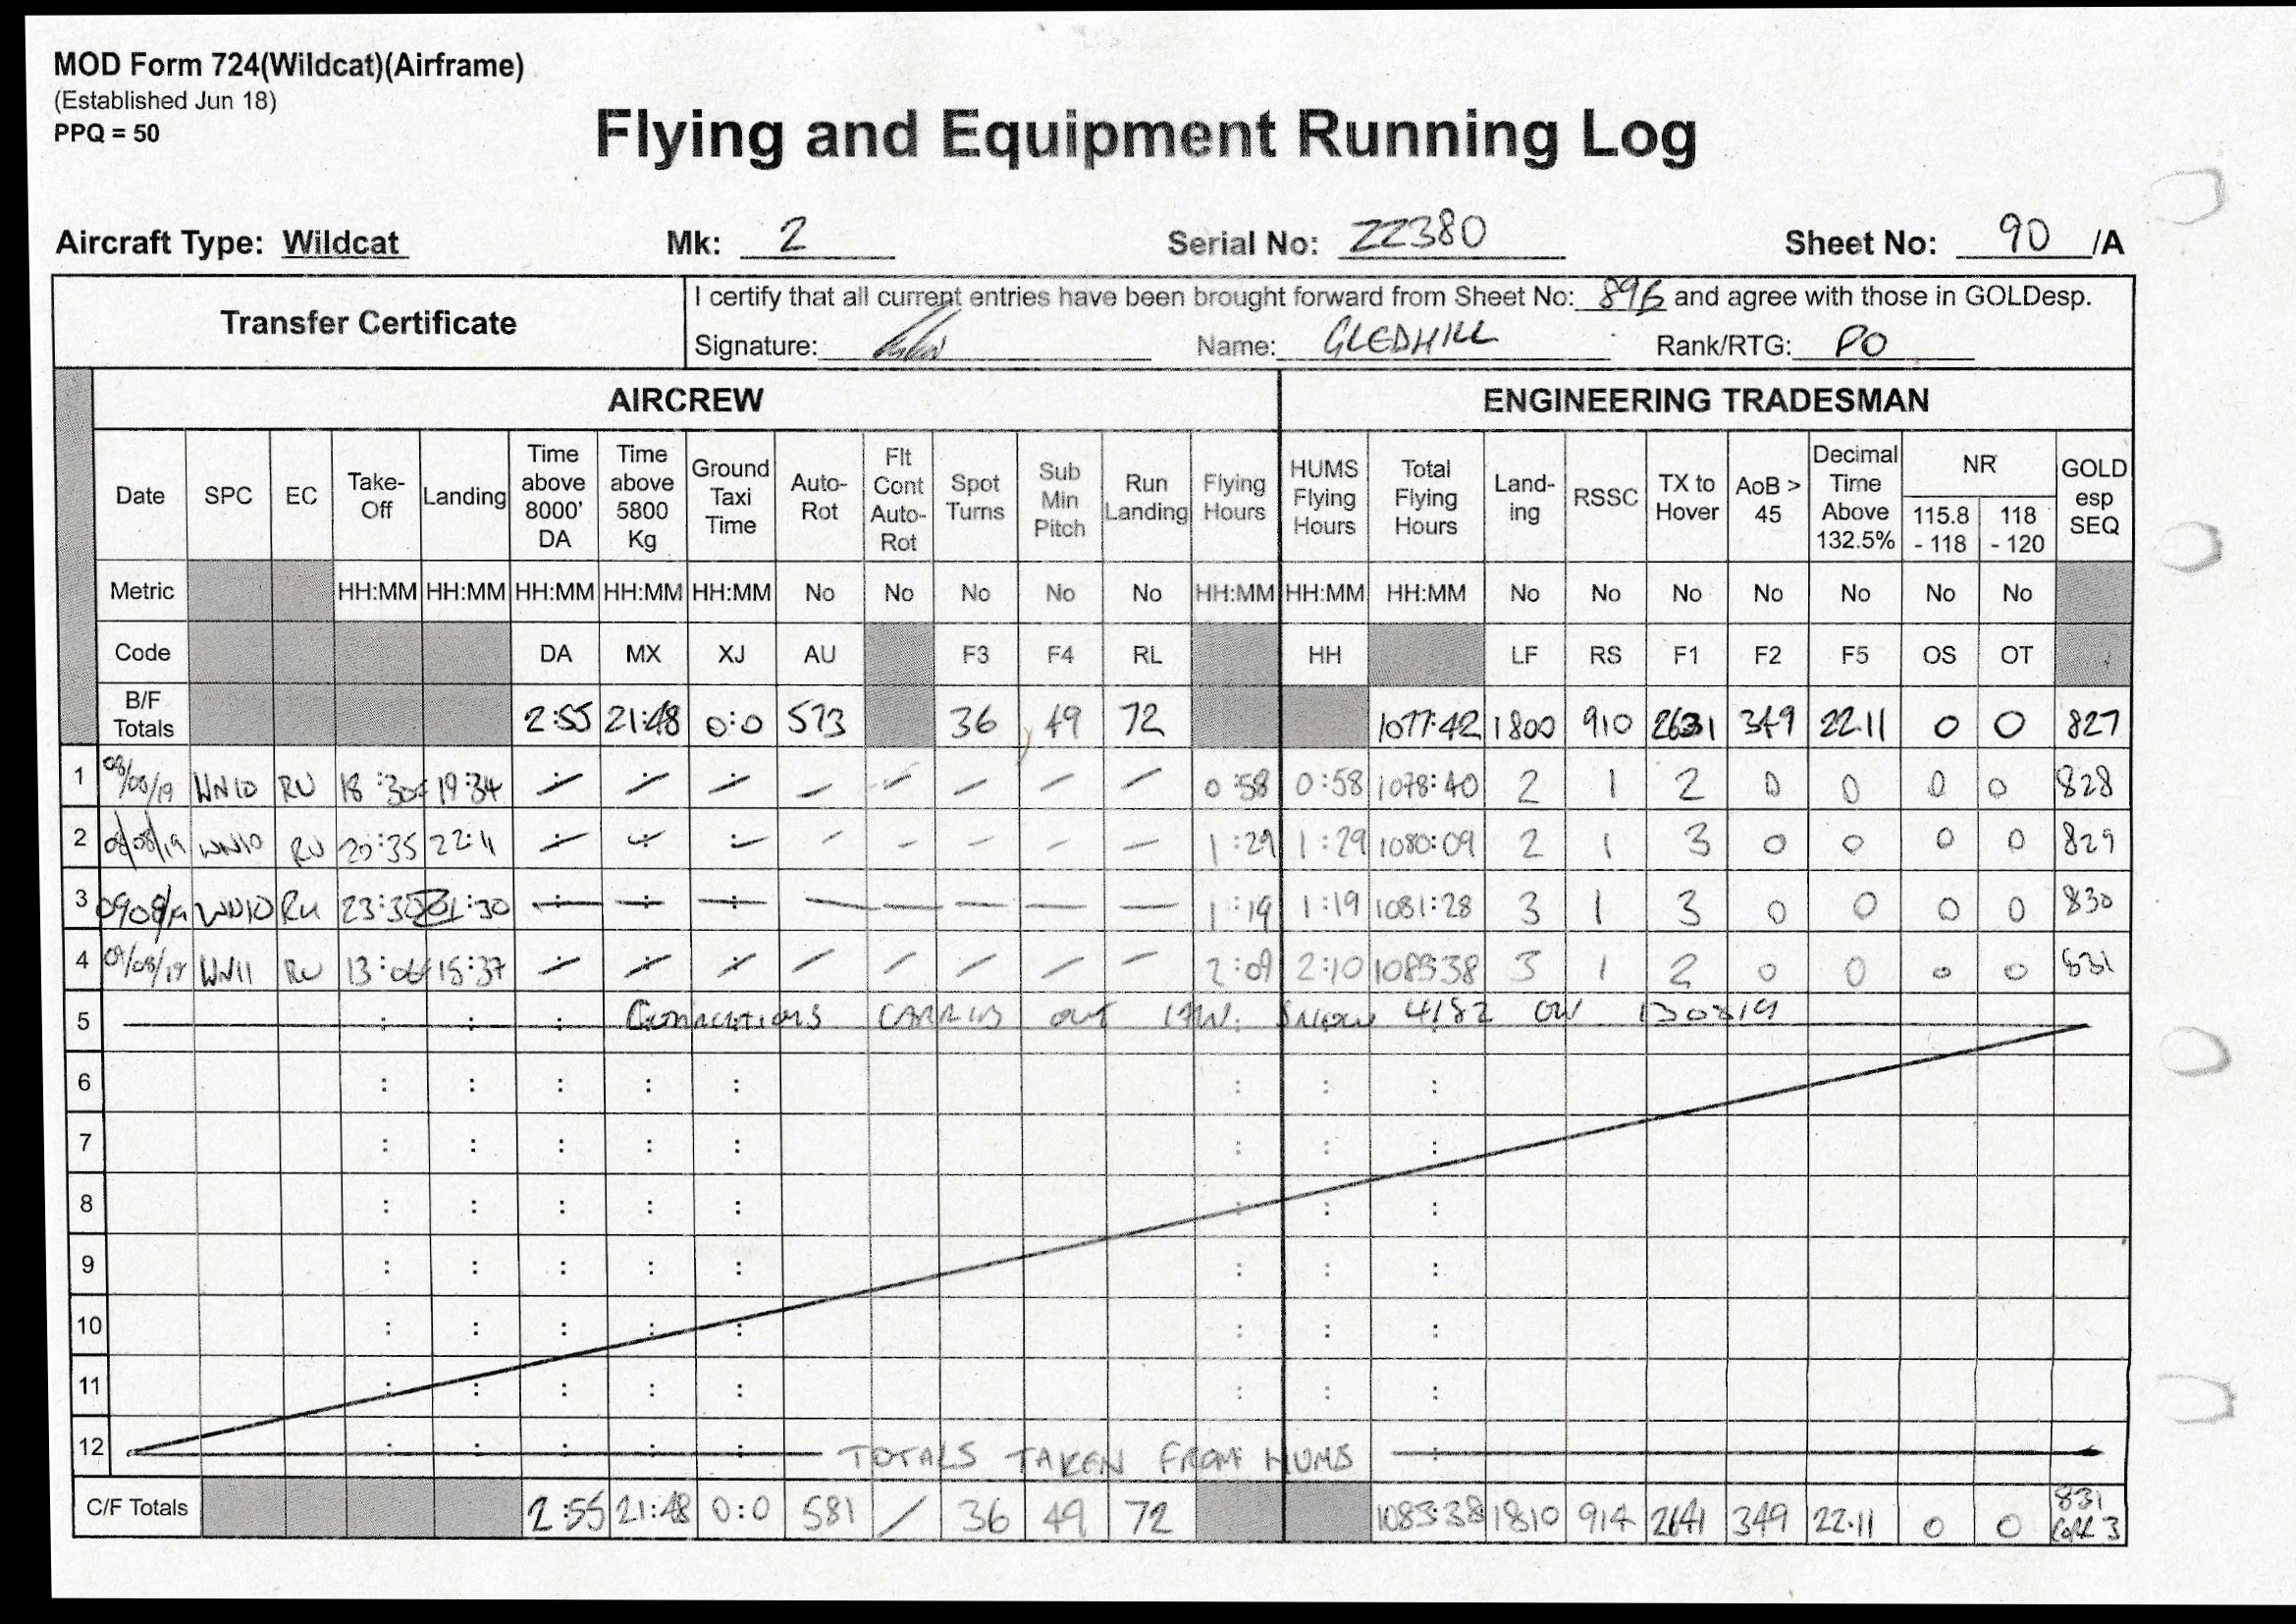 MOD Form 724(Wildcat)(Airframe)
(Established Jun 18)
PPQ = 50
Flying and Equipment Running Log
Aircraft Type: Wildcat Mk: 2 Serial No: ZZ380 Sheet No: 90 /A
Transfer Certificate
I certify that all current entries have been brought forward from Sheet No: 89B and agree with those in GOLDesp.
Signature: Name: GLEDHILL Rank/RTG: PO
AIRCREW ENGINEERING TRADESMAN
Date SPC EC Take-Off Landing Time above 8000' DA Time above 5800 Kg Ground Taxi Time Auto-Rot Flt Cont Auto-Rot Spot Turns Sub Min Pitch Run Landing Flying Hours HUMS Flying Hours Total Flying Hours Land-ing RSSC TX to Hover AoB > 45 Decimal Time Above 132.5% NR 115.8 - 118 118 - 120 GOLD esp SEQ
Metric HH:MM HH:MM HH:MM HH:MM HH:MM No No No No No HH:MM HH:MM HH:MM No No No No No No No
Code DA MX XJ AU F3 F4 RL HH LF RS F1 F2 F5 OS OT
B/F Totals 2:55 21:48 0:0 573 36 49 72 1077:42 1800 910 2631 349 22.11 0 0 827
1 08/08/19 WN10 RU 18:30 19:34 0:58 0:58 1078:40 2 1 2 0 0 0 0 828
2 08/08/19 WN10 RU 20:35 22:11 1:29 1:29 1080:09 2 1 3 0 0 0 0 829
3 09/08/19 WN10 RU 23:30 01:30 1:19 1:19 1081:28 3 1 3 0 0 0 0 830
4 09/08/19 WN11 RU 13:06 15:37 2:09 2:10 1083:38 3 1 2 0 0 0 0 831
5 CARRIED OUT IAW 4182 130819
6
7
8
9
10
11
12 TOTALS TAKEN FROM HUMS
C/F Totals 2:55 21:48 0:0 581 / 36 49 72 1083:38 1810 914 2641 349 22.11 0 0 831 3